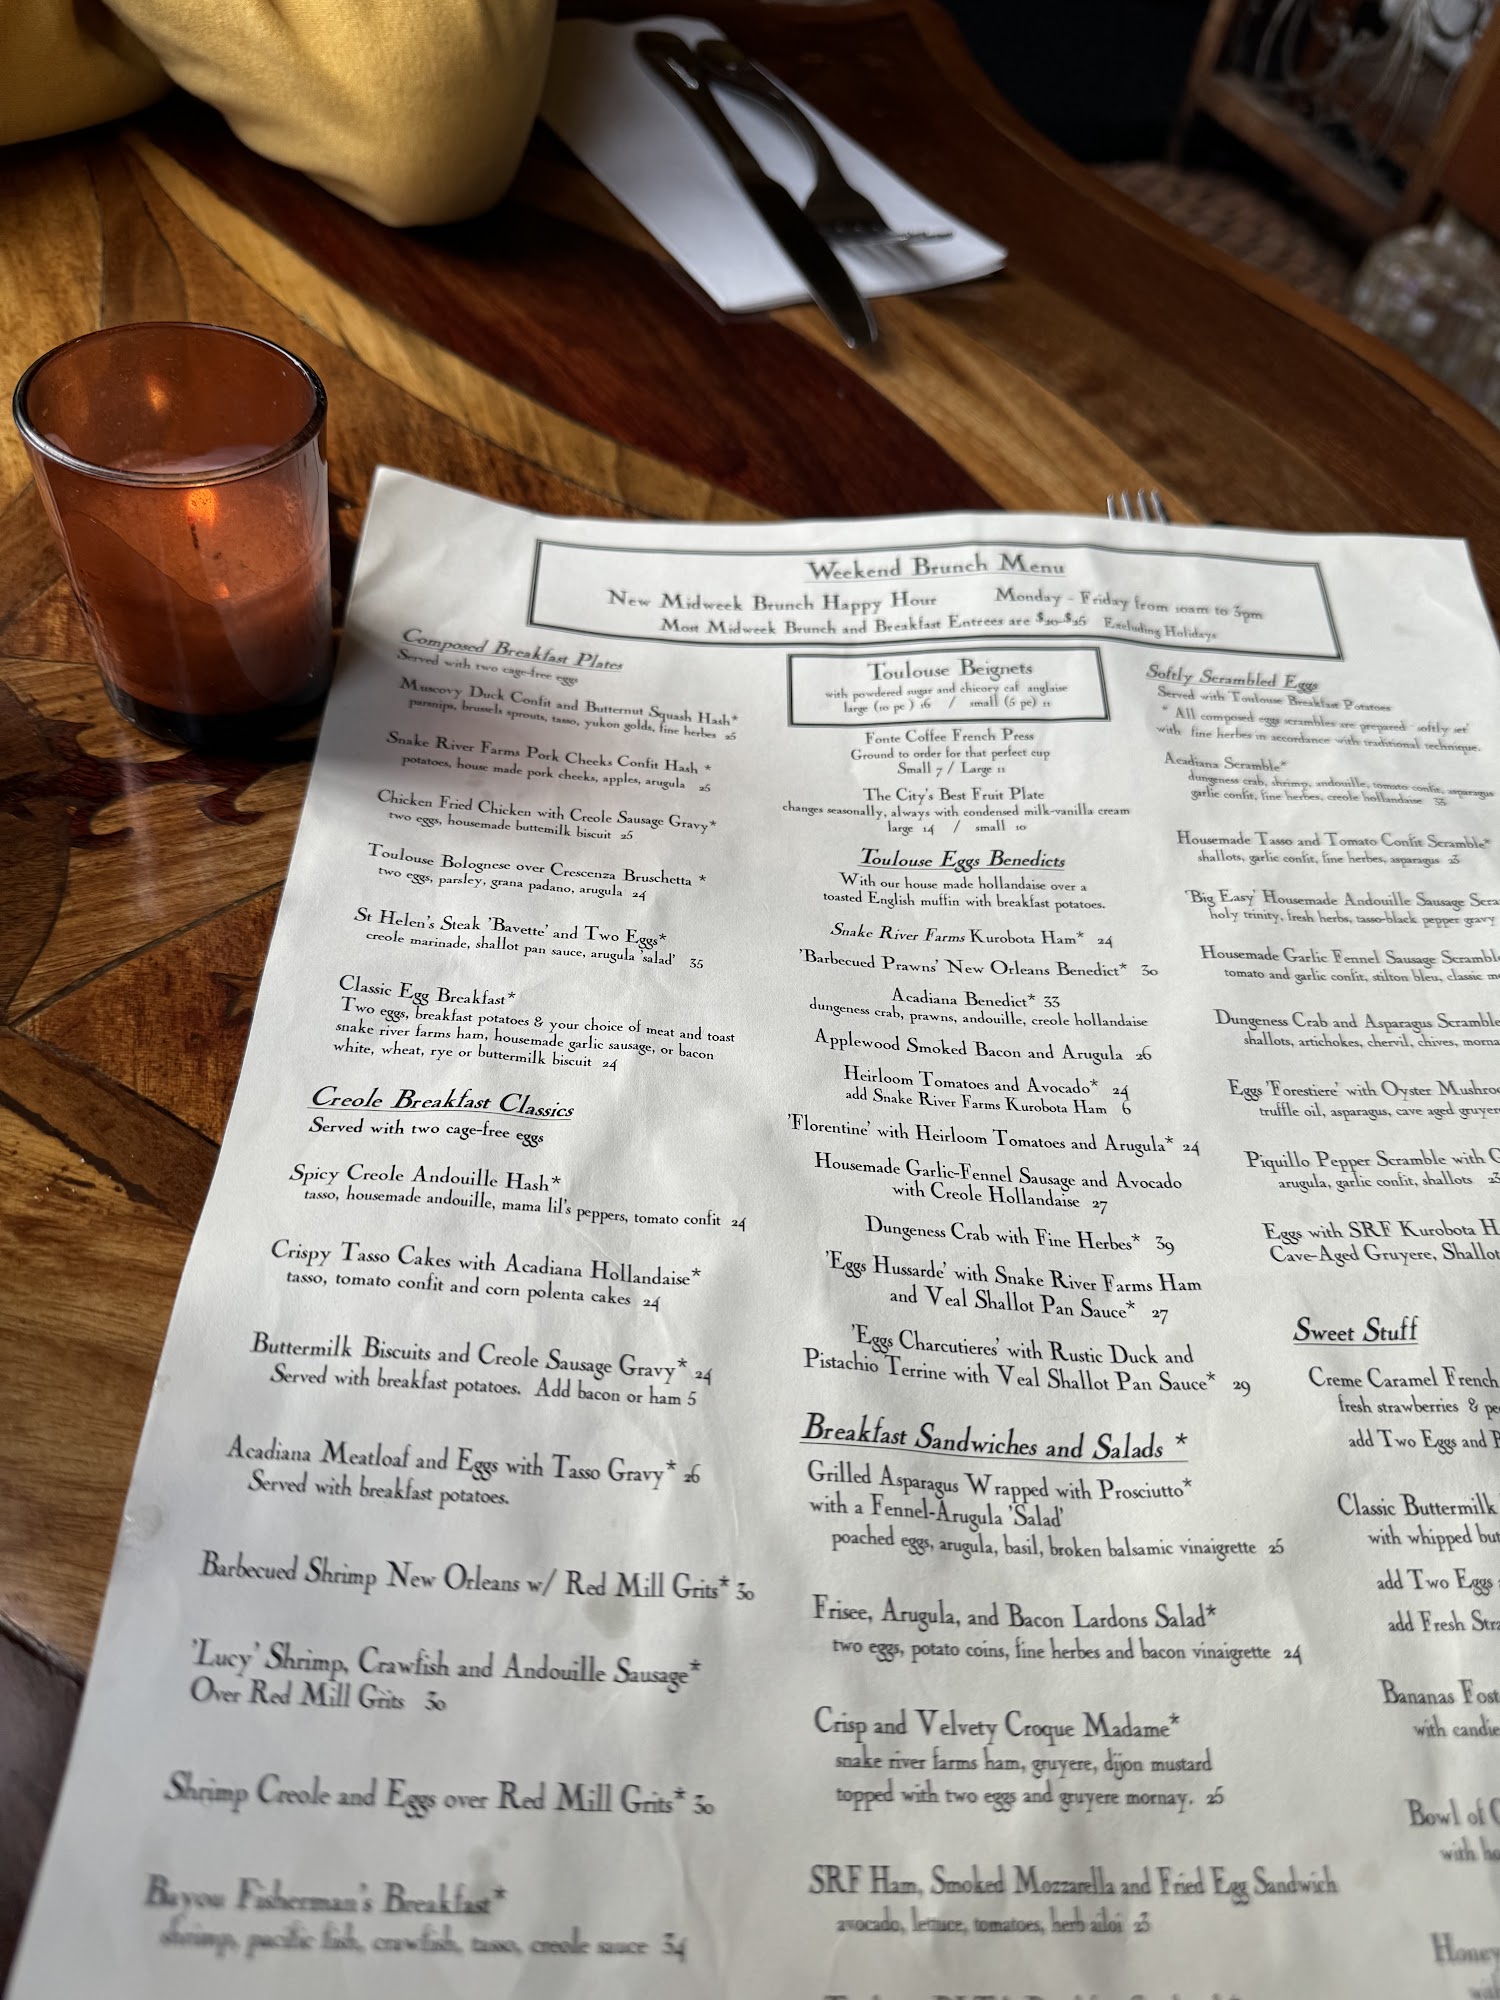 Weekend Brunch Menu
New Midweek Brunch Happy Hour Monday - Friday from 10am to 3pm
Most Midweek Brunch and Breakfast Entrees are $20-$26 Excluding Holidays
Composed Breakfast Plates
Served with two cage-free eggs
Muscovy Duck Confit and Butternut Squash Hash*
parsnips, brussels sprouts, tasso, yukon golds, fine herbes 25
Snake River Farms Pork Cheeks Confit Hash *
potatoes, house made pork cheeks, apples, arugula 25
Chicken Fried Chicken with Creole Sausage Gravy*
two eggs, housemade buttemilk biscuit 25
Toulouse Bolognese over Crescenza Bruschetta *
two eggs, parsley, grana padano, arugula 24
St Helen's Steak 'Bavette' and Two Eggs*
creole marinade, shallot pan sauce, arugula 'salad' 35
Classic Egg Breakfast*
Two eggs, breakfast potatoes & your choice of meat and toast
snake river farms ham, housemade garlic sausage, or bacon
white, wheat, rye or buttermilk biscuit 24
Creole Breakfast Classics
Served with two cage-free eggs
Spicy Creole Andouille Hash*
tasso, housemade andouille, mama lil's peppers, tomato confit 24
Crispy Tasso Cakes with Acadiana Hollandaise*
tasso, tomato confit and corn polenta cakes 24
Buttermilk Biscuits and Creole Sausage Gravy* 24
Served with breakfast potatoes. Add bacon or ham 5
Acadiana Meatloaf and Eggs with Tasso Gravy* 26
Served with breakfast potatoes.
Barbecued Shrimp New Orleans w/ Red Mill Grits* 30
'Lucy' Shrimp, Crawfish and Andouille Sausage*
Over Red Mill Grits 30
Shrimp Creole and Eggs over Red Mill Grits* 30
Bayou Fisherman's Breakfast*
shrimp, pacific fish, crawfish, tasso, creole sauce 34
Toulouse Beignets
with powdered sugar and chicory caf anglaise
large (10 pc ) 16 / small (5 pc) 11
Fonte Coffee French Press
Ground to order for that perfect cup
Small 7 / Large 11
The City's Best Fruit Plate
changes seasonally, always with condensed milk-vanilla cream
large 14 / small 10
Toulouse Eggs Benedicts
With our house made hollandaise over a
toasted English muffin with breakfast potatoes.
Snake River Farms Kurobota Ham* 24
'Barbecued Prawns' New Orleans Benedict* 30
Acadiana Benedict* 33
dungeness crab, prawns, andouille, creole hollandaise
Applewood Smoked Bacon and Arugula 26
Heirloom Tomatoes and Avocado* 24
add Snake River Farms Kurobota Ham 6
'Florentine' with Heirloom Tomatoes and Arugula* 24
Housemade Garlic-Fennel Sausage and Avocado
with Creole Hollandaise 27
Dungeness Crab with Fine Herbes* 39
'Eggs Hussarde' with Snake River Farms Ham
and Veal Shallot Pan Sauce* 27
'Eggs Charcutieres' with Rustic Duck and
Pistachio Terrine with Veal Shallot Pan Sauce* 29
Breakfast Sandwiches and Salads *
Grilled Asparagus Wrapped with Prosciutto*
with a Fennel-Arugula 'Salad'
poached eggs, arugula, basil, broken balsamic vinaigrette 25
Frisee, Arugula, and Bacon Lardons Salad*
two eggs, potato coins, fine herbes and bacon vinaigrette 24
Crisp and Velvety Croque Madame*
snake river farms ham, gruyere, dijon mustard
topped with two eggs and gruyere mornay. 25
SRF Ham, Smoked Mozzarella and Fried Egg Sandwich
avocado, lettuce, tomatoes, herb ailoi 23
Softly Scrambled Eggs
Served with Toulouse Breakfast Potatoes
* All composed eggs scrambles are prepared 'softly set'
with fine herbes in accordance with traditional technique.
Acadiana Scramble*
dungeness crab, shrimp, andouille, tomato confit, asparagus
garlic confit, fine herbes, creole hollandaise 33
Housemade Tasso and Tomato Confit Scramble*
shallots, garlic confit, fine herbes, asparagus 23
'Big Easy' Housemade Andouille Sausage Scra
holy trinity, fresh herbs, tasso-black pepper gravy
Housemade Garlic Fennel Sausage Scrambl
tomato and garlic confit, stilton bleu, classic m
Dungeness Crab and Asparagus Scramble
shallots, artichokes, chervil, chives, morna
Eggs 'Forestiere' with Oyster Mushro
truffle oil, asparagus, cave aged gruyer
Piquillo Pepper Scramble with
arugula, garlic confit, shallots 23
Eggs with SRF Kurobota H
Cave-Aged Gruyere, Shallot
Sweet Stuff
Creme Caramel French
fresh strawberries & pe
add Two Eggs and
Classic Buttermilk
with whipped but
add Two Eggs
add Fresh Stra
Bananas Fost
with candie
Bowl of
with ho
Honey